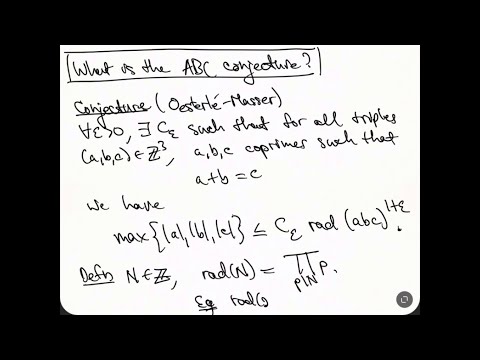 What is the ABC conjecture?
Conjecture (Oesterlé-Masser)
∀ε>0, ∃ C_ε such that for all triples
(a,b,c) ∈ ℤ³, a,b,c coprimes such that
a+b = c
we have
max{|a|,|b|,|c|} ≤ C_ε rad (abc)^{1+ε}.
Defn N∈ℤ, rad(N) = ∏_{p|N} p.
Eg rad(